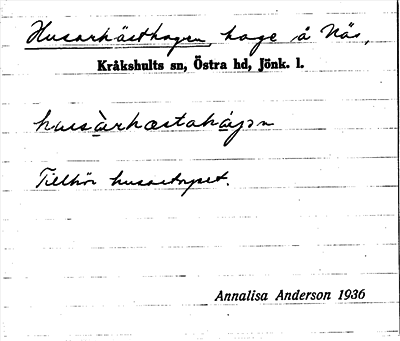 Husarhästhagen, hage å Näs,
Kråkshults sn, Östra hd, Jönk. l.
husàrhæstahágən
Tillhör husartorpet.
Annalisa Anderson 1936